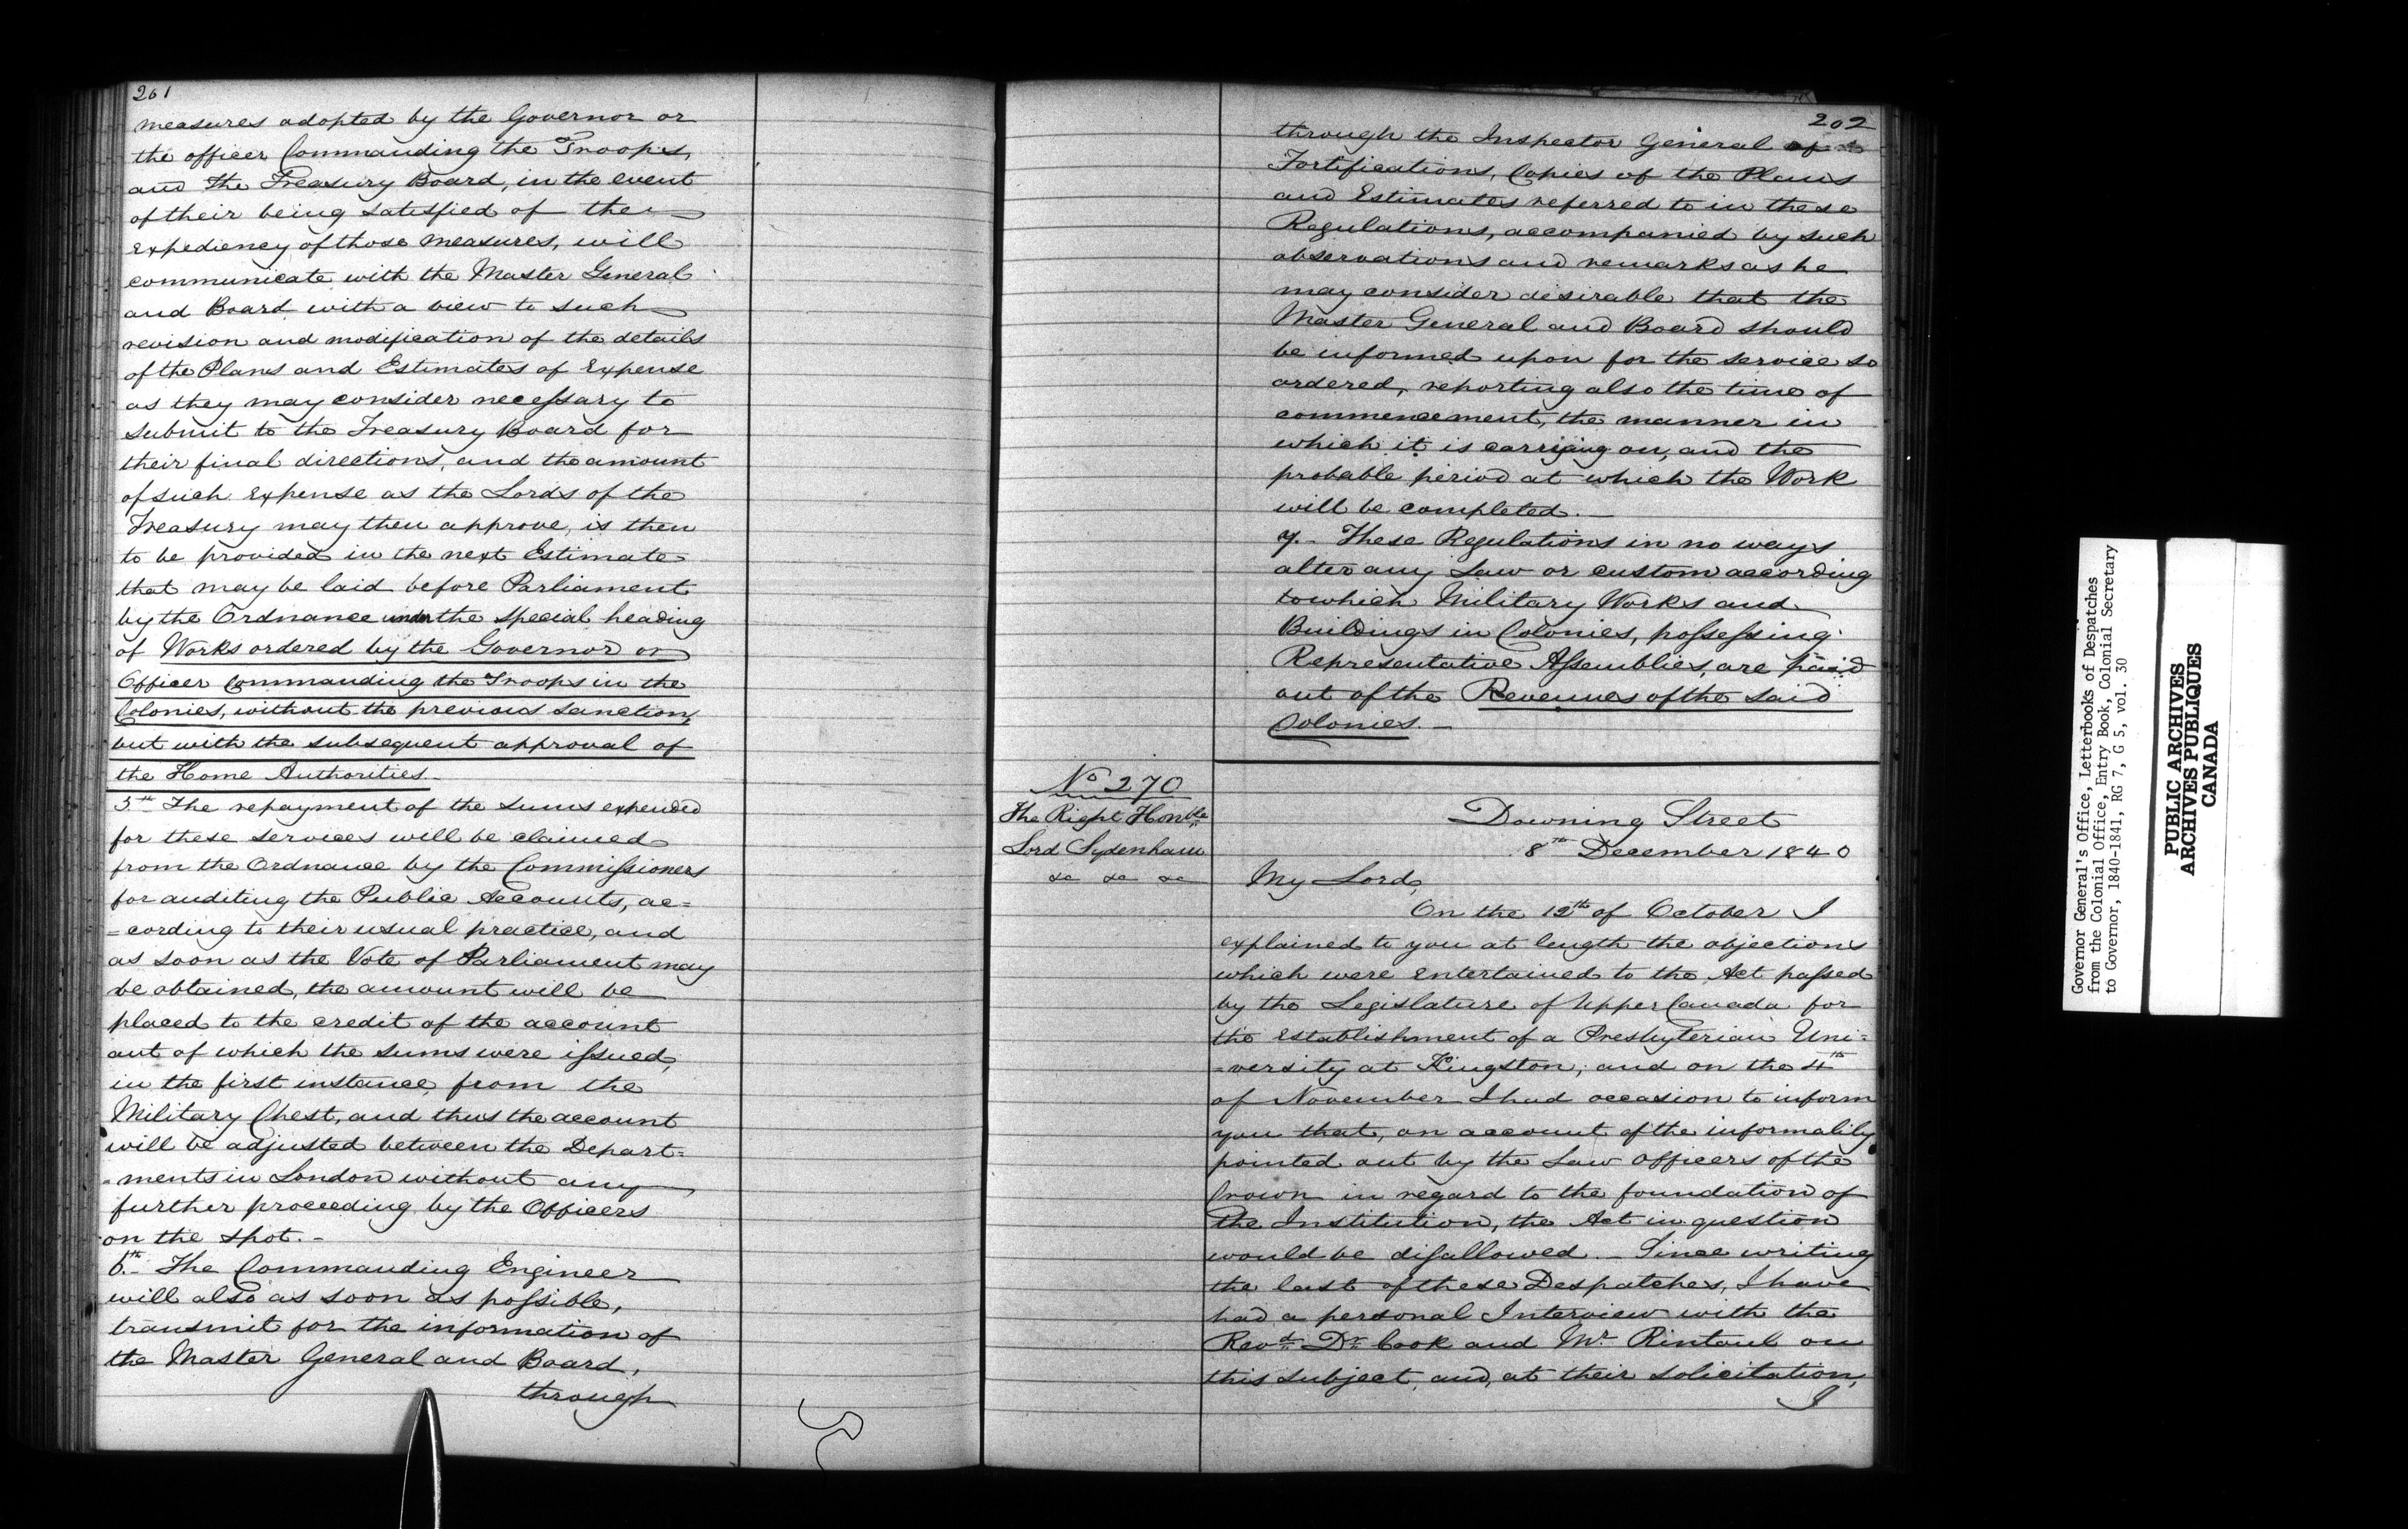 201
measures adopted by the Governor or
the officer Commanding the Troops,
and the Treasury Board, in the event
of their being satisfied of the
expediency of those measures, will
communicate with the Master General
and Board with a view to such
revision and modification of the details
of the Plans and Estimates of Expense
as they may consider necessary to
submit to the Treasury Board for
their final directions, and the amount
of such expense as the Lords of the
Treasury may then approve, is then
to be provided in the next Estimate
that may be laid before Parliament
by the Ordnance under the special heading
of Works ordered by the Governor or
Officer Commanding the Troops in the
Colonies, without the previous sanction,
but with the subsequent approval of
the Home Authorities.
5th The repayment of the sums expended
for these services will be claimed
from the Ordnance by the Commissioners
for auditing the Public Accounts, ac=
=cording to their usual practice, and
as soon as the Vote of Parliament may
be obtained, the amount will be
placed to the credit of the account
out of which the sums were issued,
in the first instance from the
Military Chest, and thus the account
will be adjusted between the Depart=
=ments in London without any
further proceeding by the Officers
on the spot.-
6th. The Commanding Engineer
will also as soon as possible,
transmit for the information of
the Master General and Board,
through
202
through the Inspector General of
Fortifications, Copies of the Plans
and Estimates referred to in these
Regulations, accompanied by such
observations and remarks as he
may consider desirable that the
Master General and Board should
be informed upon for the service so
ordered, reporting also the time of
commencement, the manner in
which it is carrying on, and the
probable period at which the Work
will be completed.-
7.- These Regulations in no ways
alter any Law or custom according
to which Military Works and
Buildings in Colonies, possessing
Representative Assemblies, are paid
out of the Revenues of the said
Colonies.-
No 270
The Right Honble
Lord Sydenham
&c &c &c
Downing Street
8th December 1840
My Lord,
On the 12th of October I
explained to you at length the objections
which were entertained to the Act passed
by the Legislature of Upper Canada for
the establishment of a Presbyterian Uni=
=versity at Kingston; and on the 4th
of November I had occasion to inform
you that, on account of the informality
pointed out by the Law Officers of the
Crown in regard to the foundation of
the Institution, the Act in question
would be disallowed.- Since writing
the last of these Despatches, I have
had a personal Interview with the
Revd. Dr. Cook and Mr. Rintoul on
this subject, and, at their solicitation,
I
Governor General's Office, Letterbooks of Despatches
from the Colonial Office, Entry Book, Colonial Secretary
to Governor, 1840-1841, RG 7, G 5, vol. 30
PUBLIC ARCHIVES
ARCHIVES PUBLIQUES
CANADA